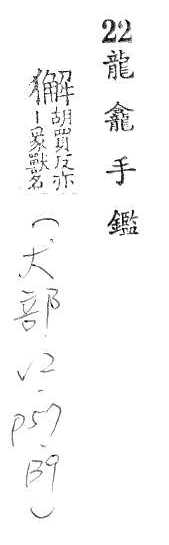 22龍龕手鑑
獬胡買反亦
丨豸獸名
(犬部.V2-p57-B9)